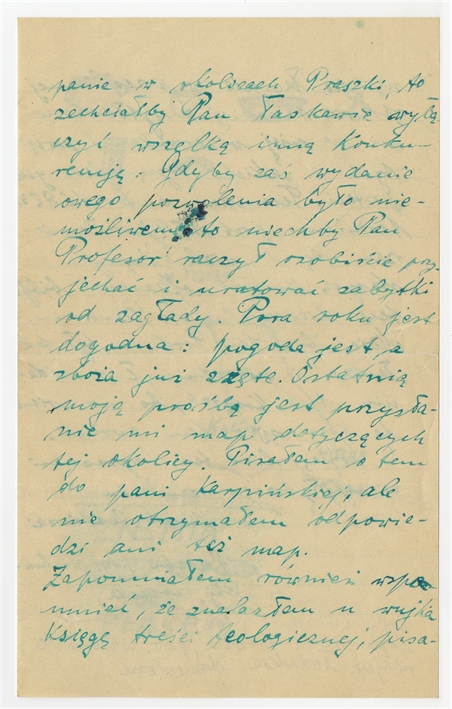 panie w okolicach Praszki, to
zechciałby Pan łaskawie wyłą
czyć wszelką inną konku-
rencję. Gdyby zaś wydanie
owego pozwolenia było nie-
możliwem, to niechby Pan
Profesor raczył osobiście przy
jechać i uratować zabytki
od zagłady. Pora roku jest
dogodna: pogoda jest, a
zboża już zżęte. Ostatnią
moją prośbą jest przysła-
nie mi map dotyczących
tej okolicy. Pisałem o tem
do pani Karpińskiej, ale
nie otrzymałem odpowie-
dzi ani też map.
Zapomniałem również wspo
mnieć, że znalazłem u wujka
księgę treści teologicznej, pisa-